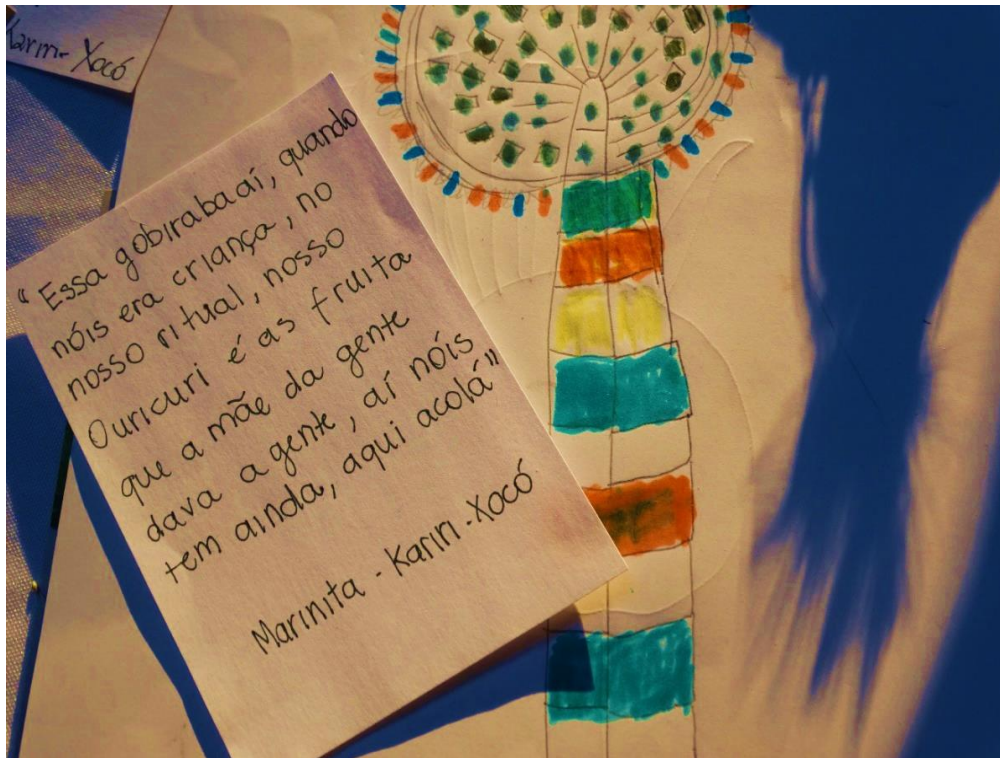 Kariri-Xocó
"Essa gobirabaaí, quando
nóis era criança, no
nosso ritual, nosso
Ouricuri é as fruita
que a mãe da gente
dava a gente, aí nóis
tem ainda, aqui acolá"
Marinita - Kariri-Xocó